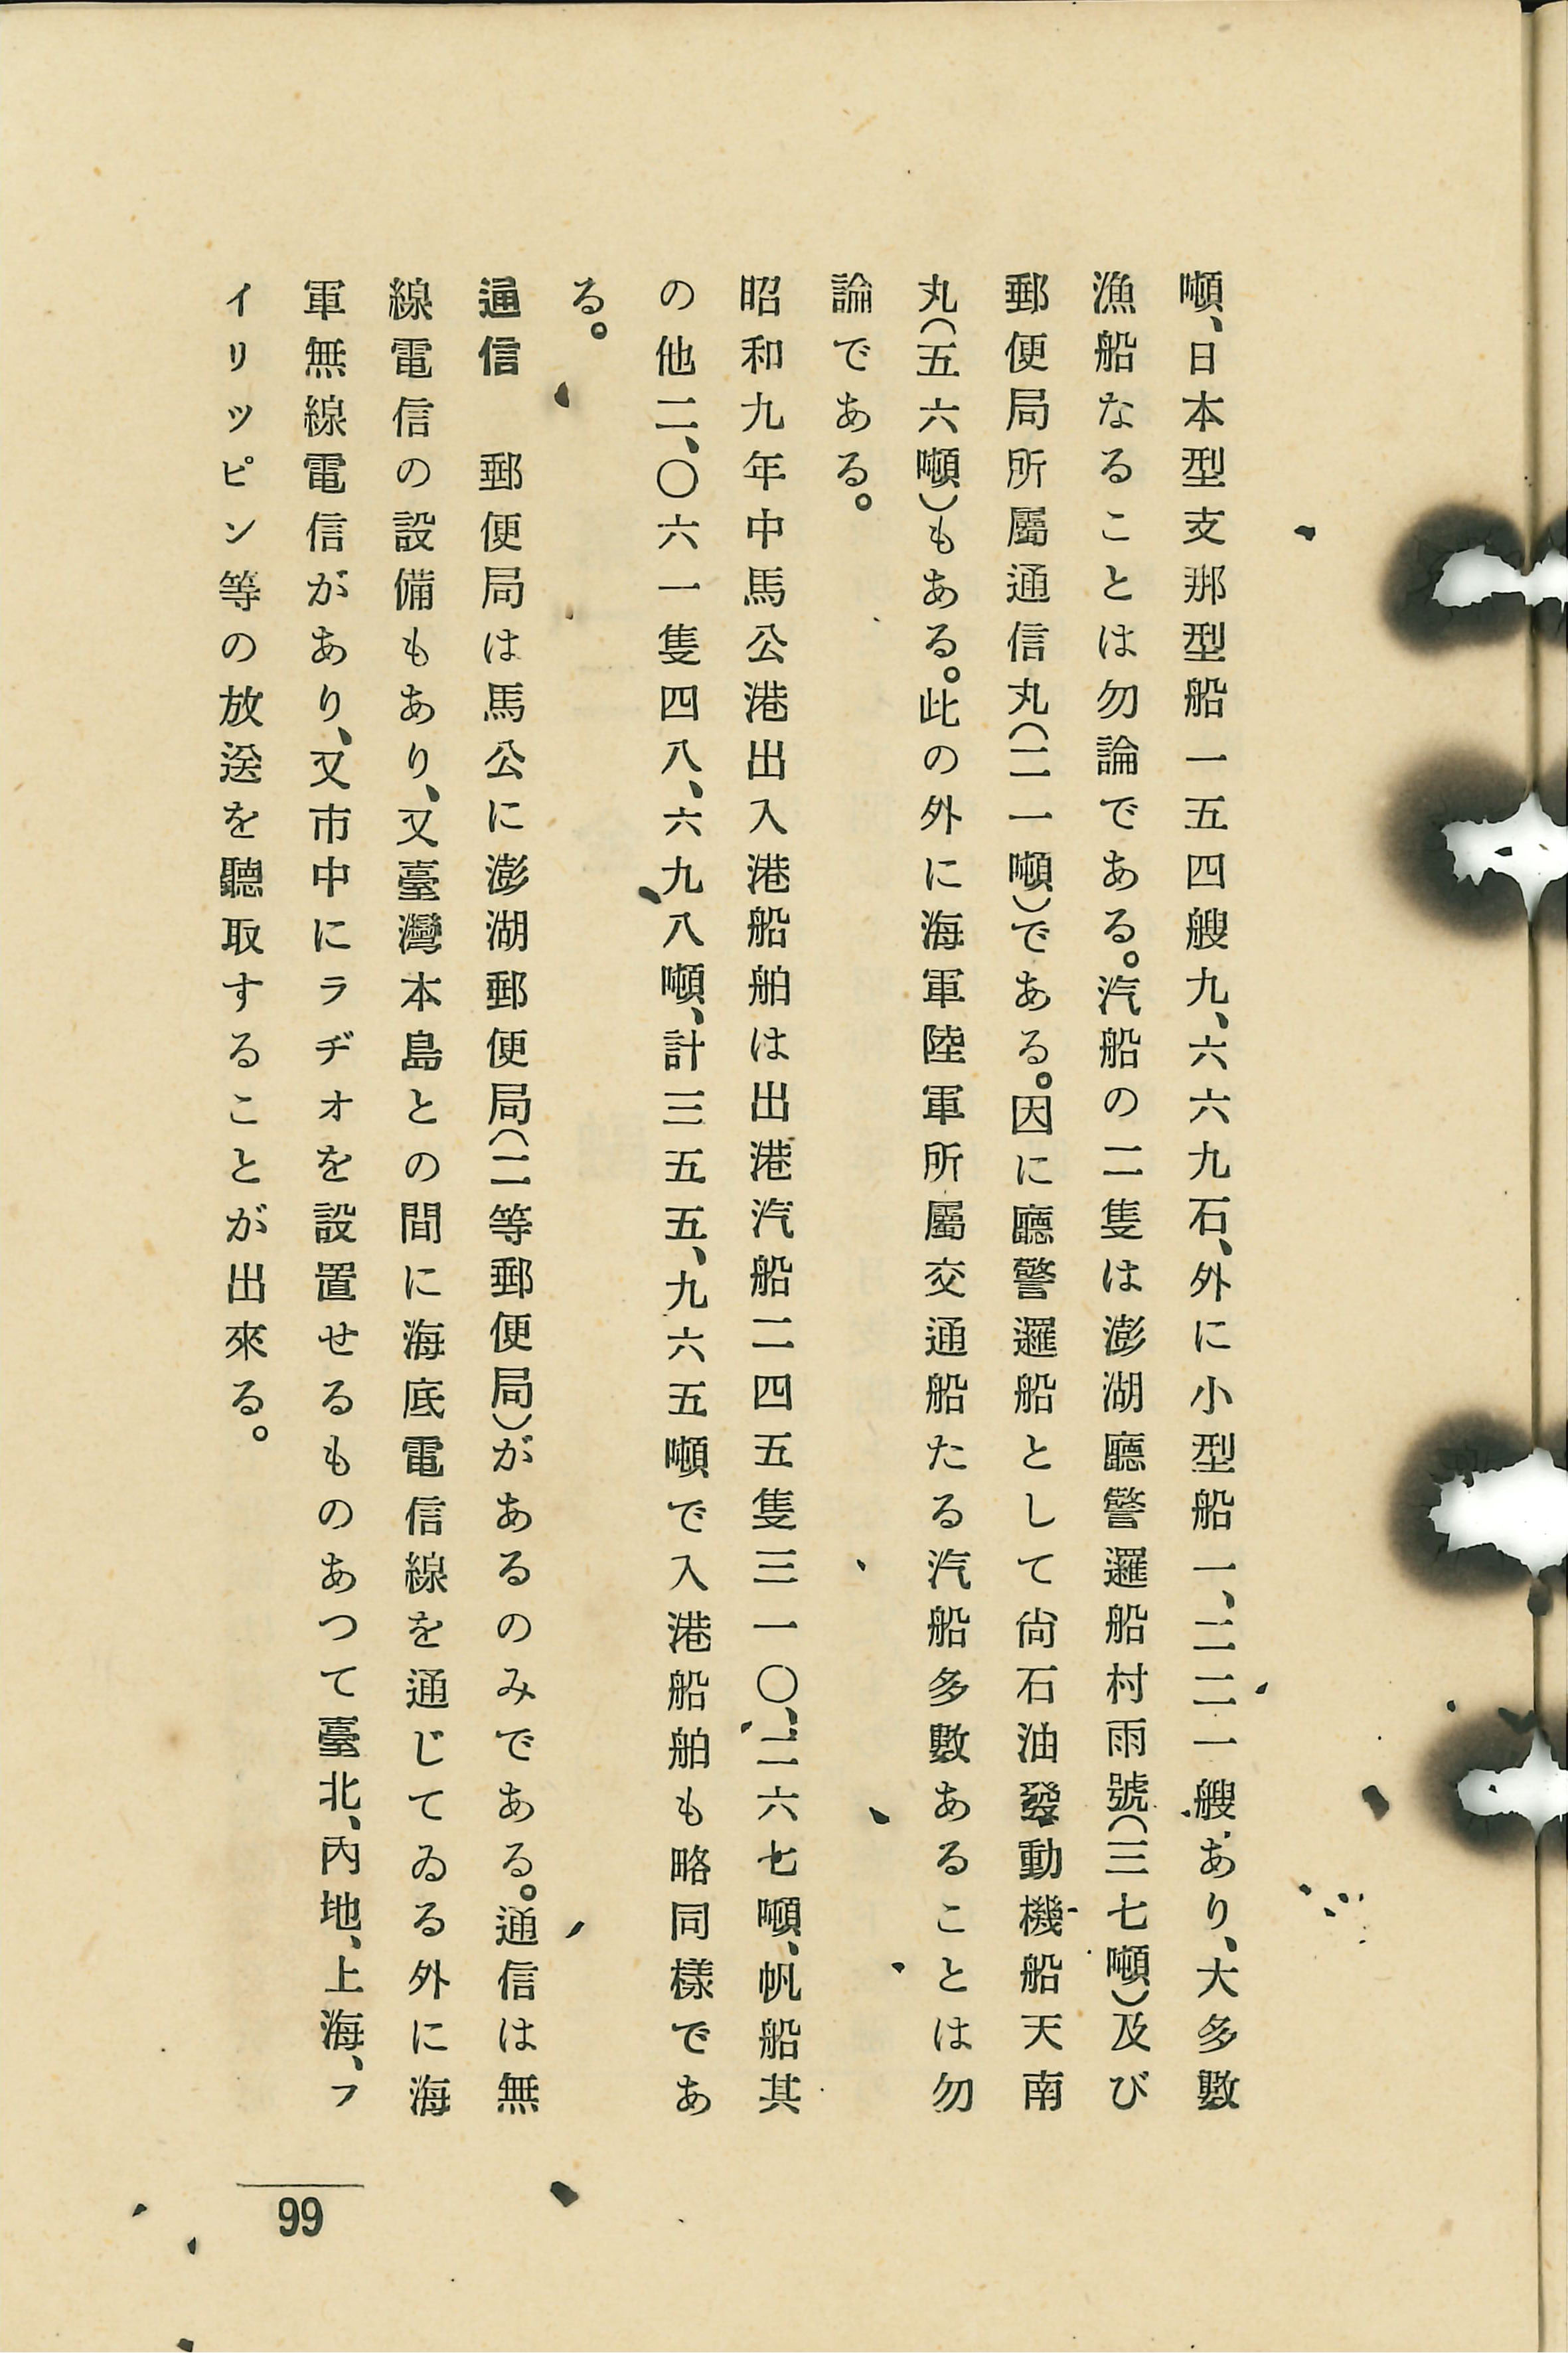 噸、日本型支那型船一五四艘九、六六九石、外に小型船一、二二一艘あり、大多數
漁船なることは勿論である。汽船の二隻は澎湖廳警邏船村雨號(三七噸)及び
郵便局所屬通信丸(二一噸)である。因に廳警邏船として尙石油發動機船天南
丸(五六噸)もある。此の外に海軍陸軍所屬交通船たる汽船多數あることは勿
論である。
昭和九年中馬公港出入港船舶は出港汽船二四五隻三一〇、二六七噸、帆船其
の他二、〇六一隻四八、六九八噸、計三五五、九六五噸で入港船舶も略同樣であ
る。
通信　郵便局は馬公に澎湖郵便局(二等郵便局)があるのみである。通信は無
線電信の設備もあり、又臺灣本島との間に海底電信線を通じてゐる外に海
軍無線電信があり、又市中にラヂオを設置せるものあつて臺北、內地、上海、フ
イリッピン等の放送を聽取することが出來る。
99